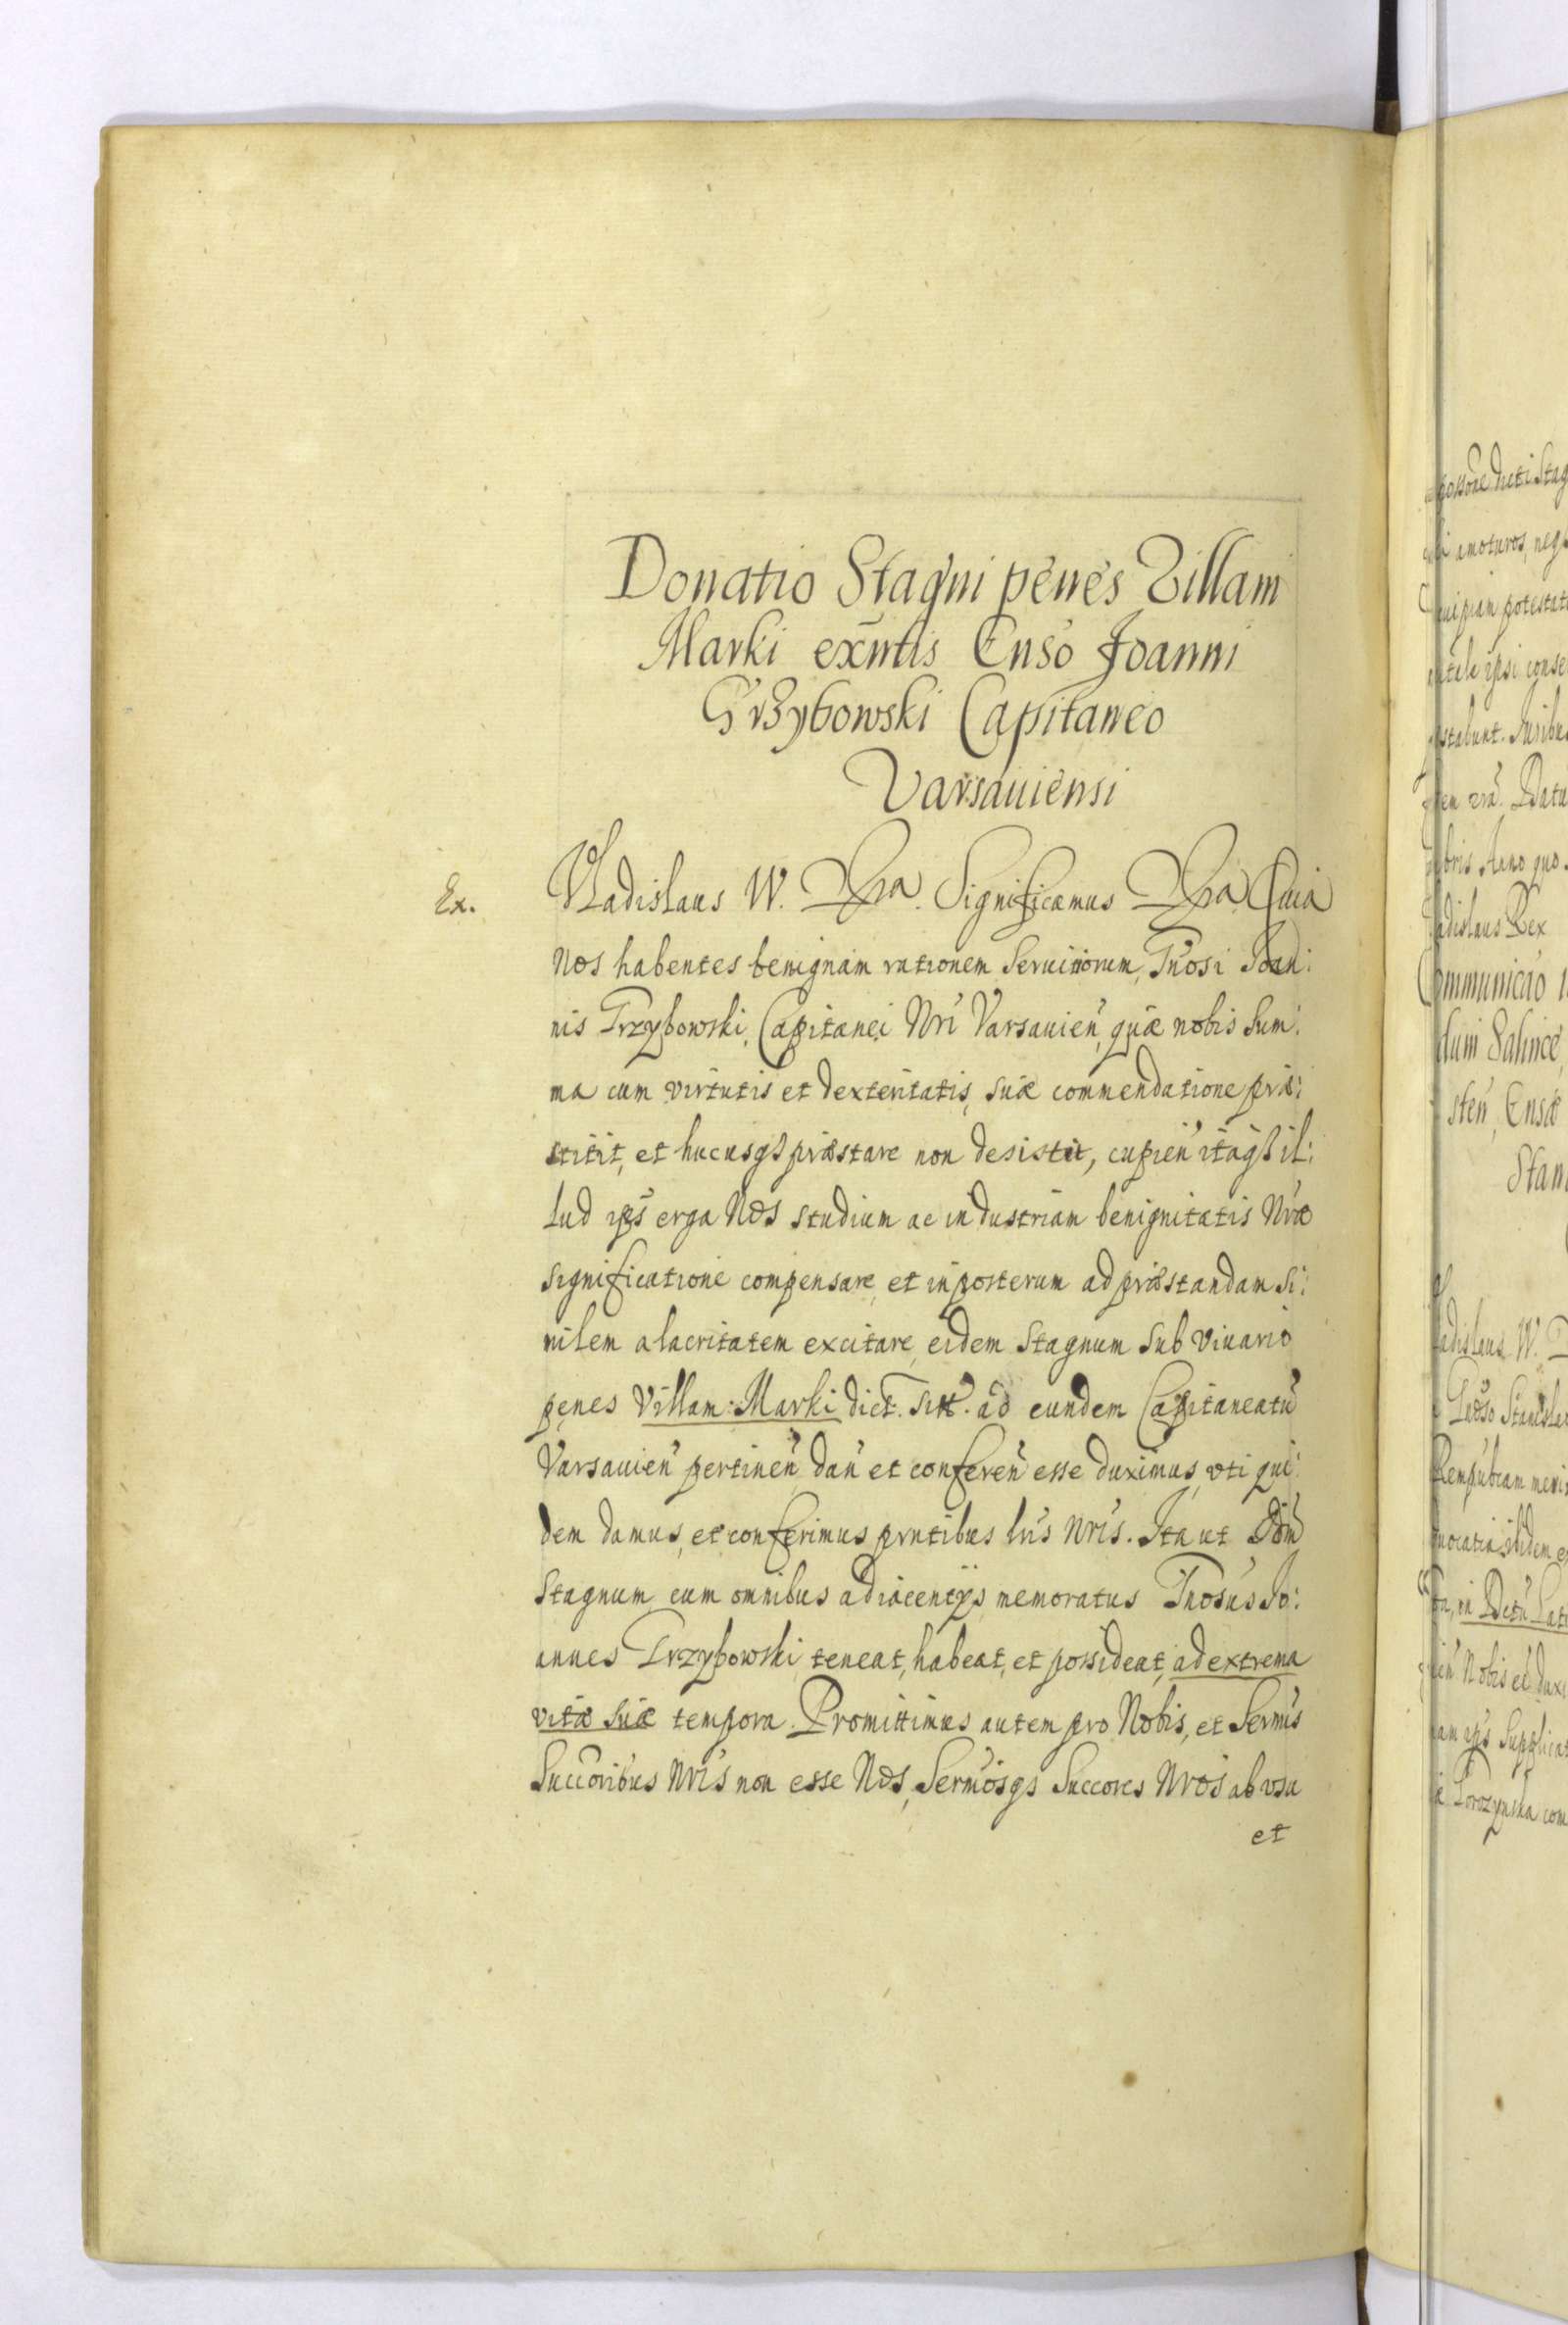 Donatio Stagni penes Villam
Marki exñtis Gnso Joanni
Grzybowski Capitaneo
Varsauiensi
Ex.
Vladislaus IV. Dęra. Significamus Dęra. Quia
Nos habentes benignam rationem Seruitiorum, Gnosi Joan:
nis Grzybowski, Capitanei Nri Varsauień, quæ nobis Sum:
ma cum virtutis et dexteritatis, suæ commendatione præ:
stitit, et hucusqz præstare non desistit, cupień itaqz il:
lud ips erga Nos studium ac industriam benignitatis Nræ
significatione compensare, et inposterum ad præstandam Si:
milem alacritatem excitare, eidem Stagnum Sub Viuario
penes Villam Marki dict. sitt. ad eundem Capitaneatũ
Varsauień pertineń dań et confereń esse duximus, vti qui:
dem damus, et conferimus prntibus lris Nris. Ita ut
Stagnum cum omnibus adiacentijs memoratus Gnosus Jo:
annes Grzybowski teneat, habeat, et possideat, ad extrema
vitæ suæ tempora. Promittimus autem pro Nobis, et Sermis
Succoribus Nris non esse Nos, Sermosqz Succores Nros ab vsu
et
possoñe dicti Stag
amoturos, neq
cuipiam potestat
tale ipsi conse
stabunt. Juribu
Datu
bris Anno quo
adislaus Rex
Communicao
Salince
steń, Gnsæ
Stan
adislaus IV.
Gnoso Stanisla
Rempubcam
ibidem
in Dictu
Nobis et duxi
am ips Supplicat
com